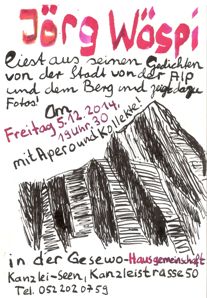 Jörg Wäspi
liest aus seinen Gedichten
von der Stadt von der Alp
und dem Berg und zeigt dazu
Fotos!
Am
Freitag 5.12.2014,
19 Uhr 30
mit Apero und Kollekte!
in der Gesewo-Hausgemeinschaft
Kanzlei-Seen, Kanzleistrasse 50
Tel. 052 202 07 59